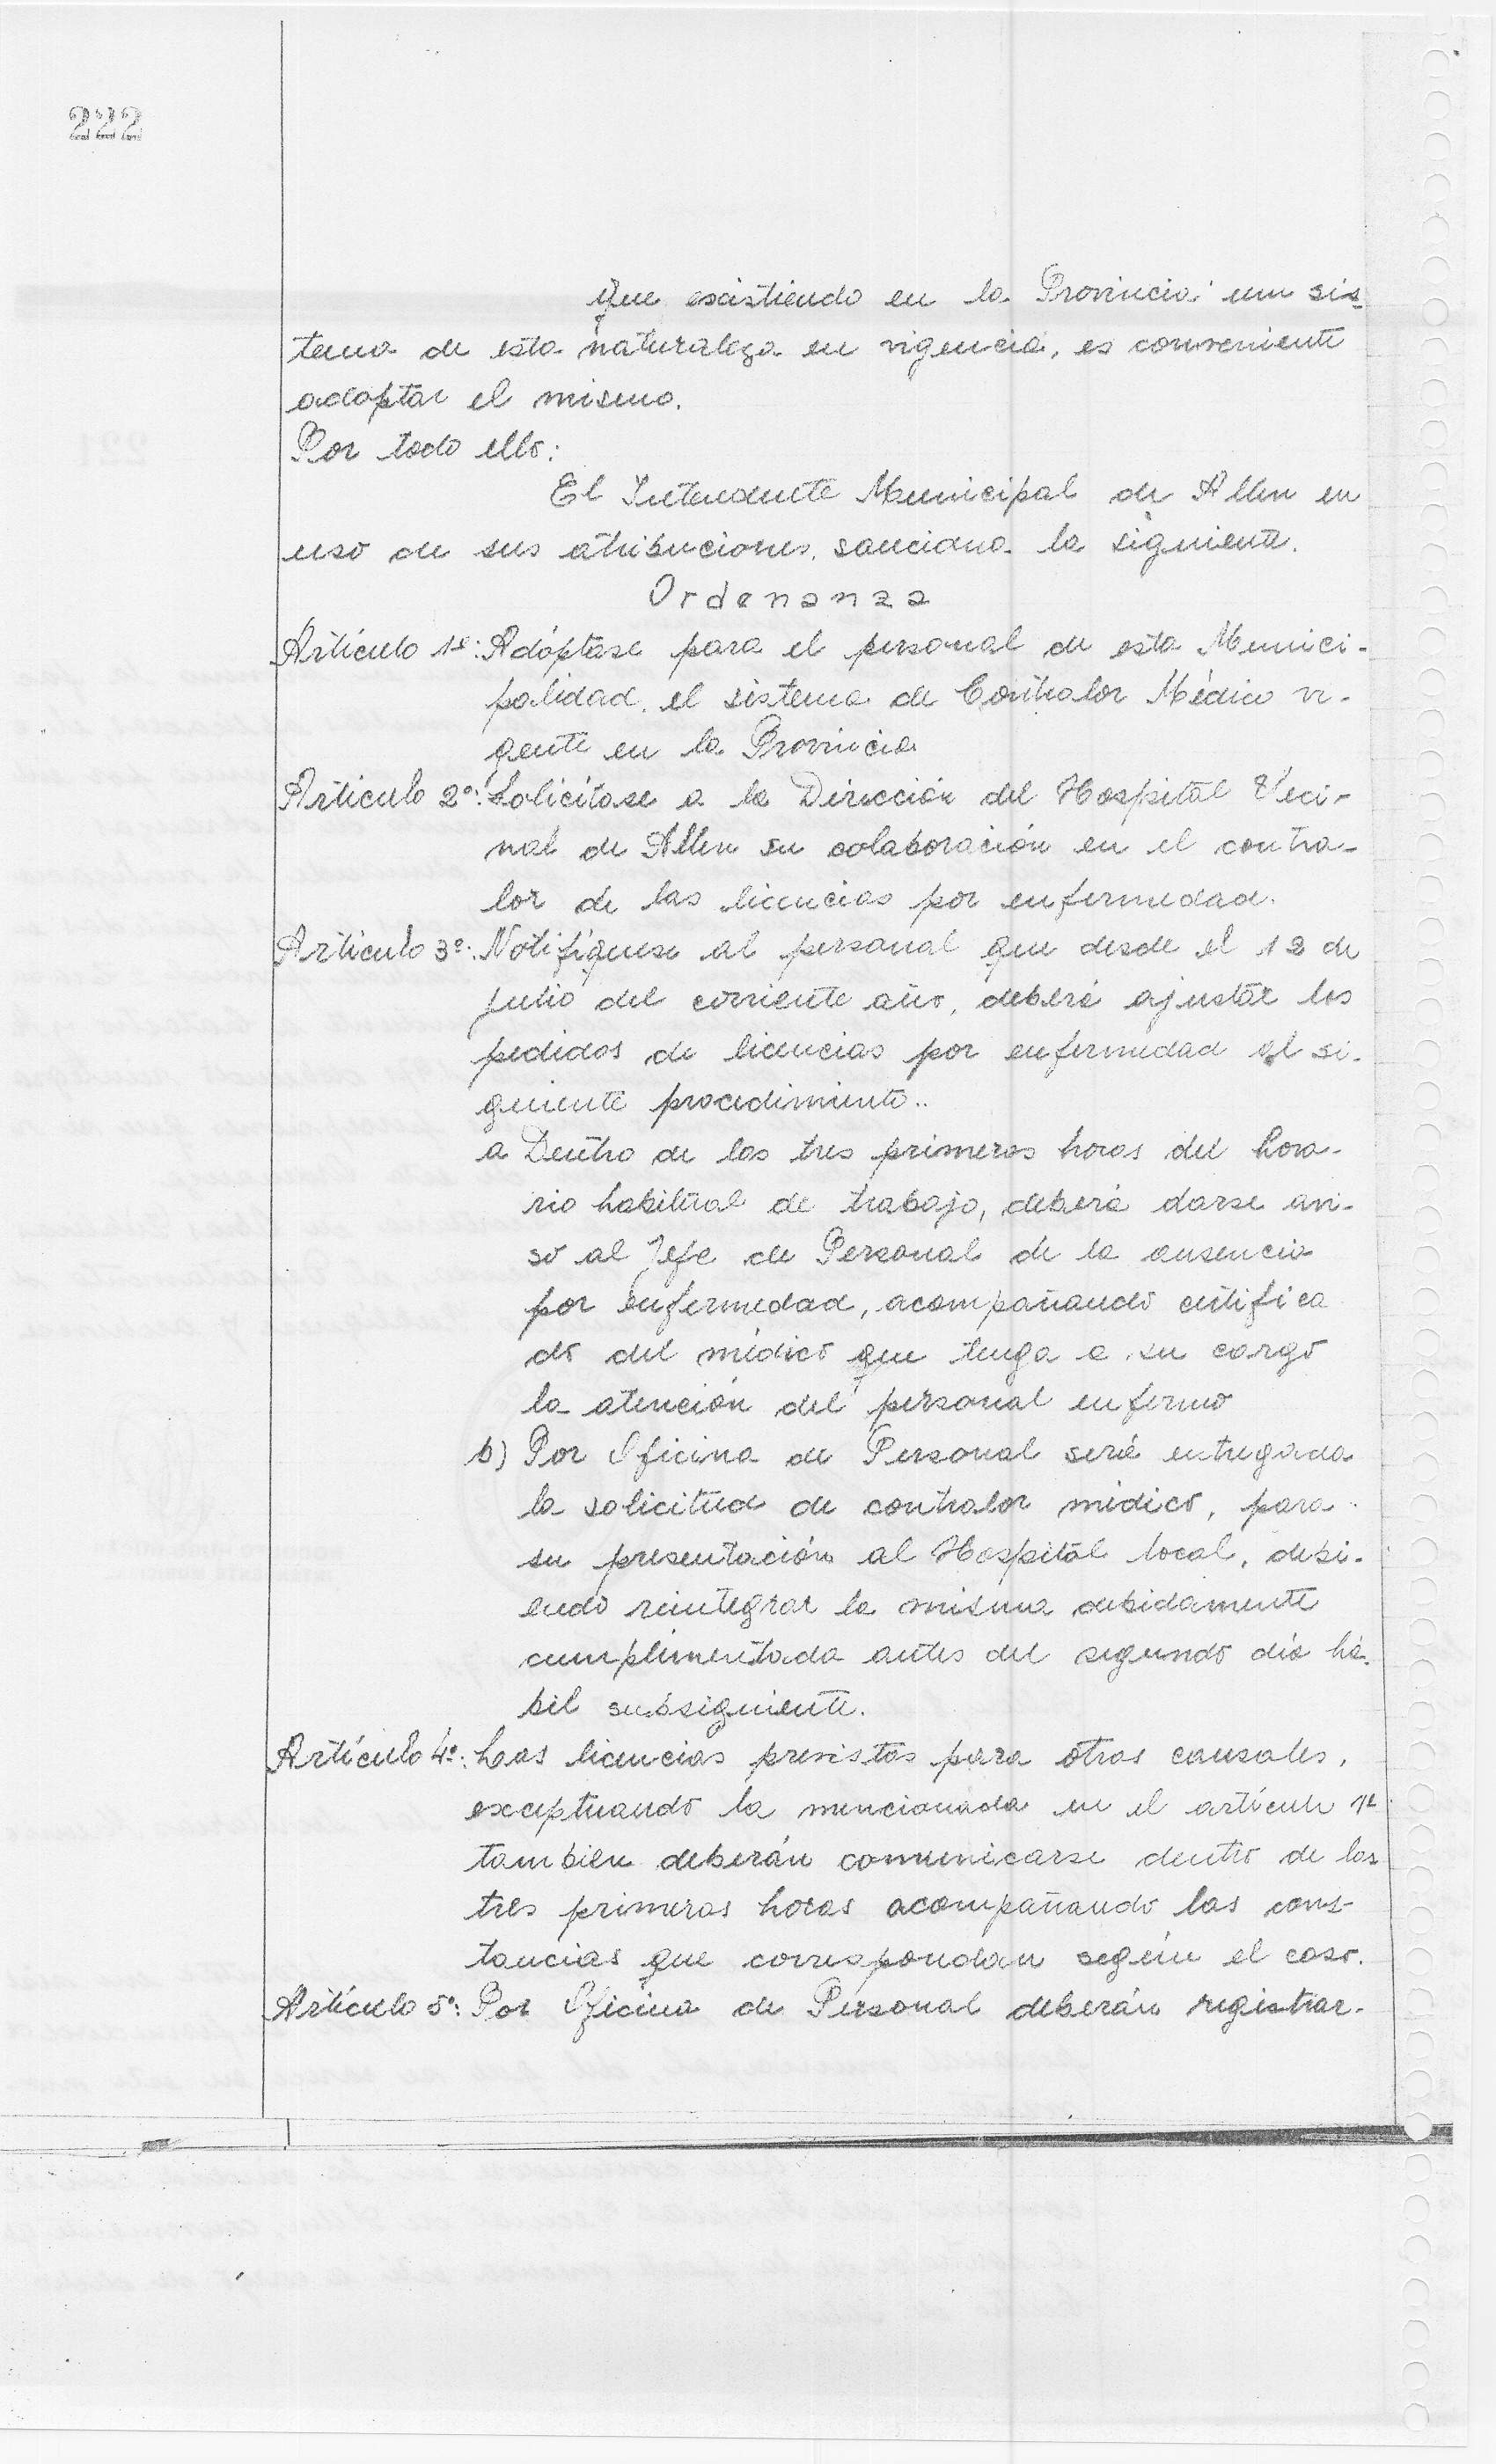 222
Que existiendo en la Provincia un sis-
tema de esta naturaleza en vigencia, es conveniente
adoptar el mismo.
Por todo ello:
El Intendente Municipal de Allen en
uso de sus atribuciones, sanciona la siguiente.
Ordenanza
Artículo 1º: Adóptase para el personal de esta Munici-
palidad, el sistema de Contralor Médico vi-
gente en la Provincia
Artículo 2º: Solicítase a la Dirección del Hospital Veci-
nal de Allen su colaboración en el contra-
lor de las licencias por enfermedad.
Artículo 3º: Notifíquese al personal que desde el 12 de
julio del corriente año, deberá ajustar los
pedidos de licencias por enfermedad al si-
guiente procedimiento..
a Dentro de las tres primeras horas del hora-
rio habitual de trabajo, deberá darse avi-
so al Jefe de Personal de la ausencia
por enfermedad, acompañando certifica
do del médico que tenga a su cargo
la atención del personal enfermo
b) Por Oficina de Personal será entregada
la solicitud de contralor médico, para
su presentación al Hospital local, debi-
endo reintegrar la misma debidamente
cumplimentada antes del segundo día há-
bil subsiguiente.
Artículo 4º: Las licencias previstas para otras causales,
exceptuando la mencionada en el artículo 1º
tambien deberán comunicarse dentro de las
tres primeras horas acompañando las cons-
tancias que correspondan según el caso.
Artículo 5º: Por Oficina de Personal deberán registrar-